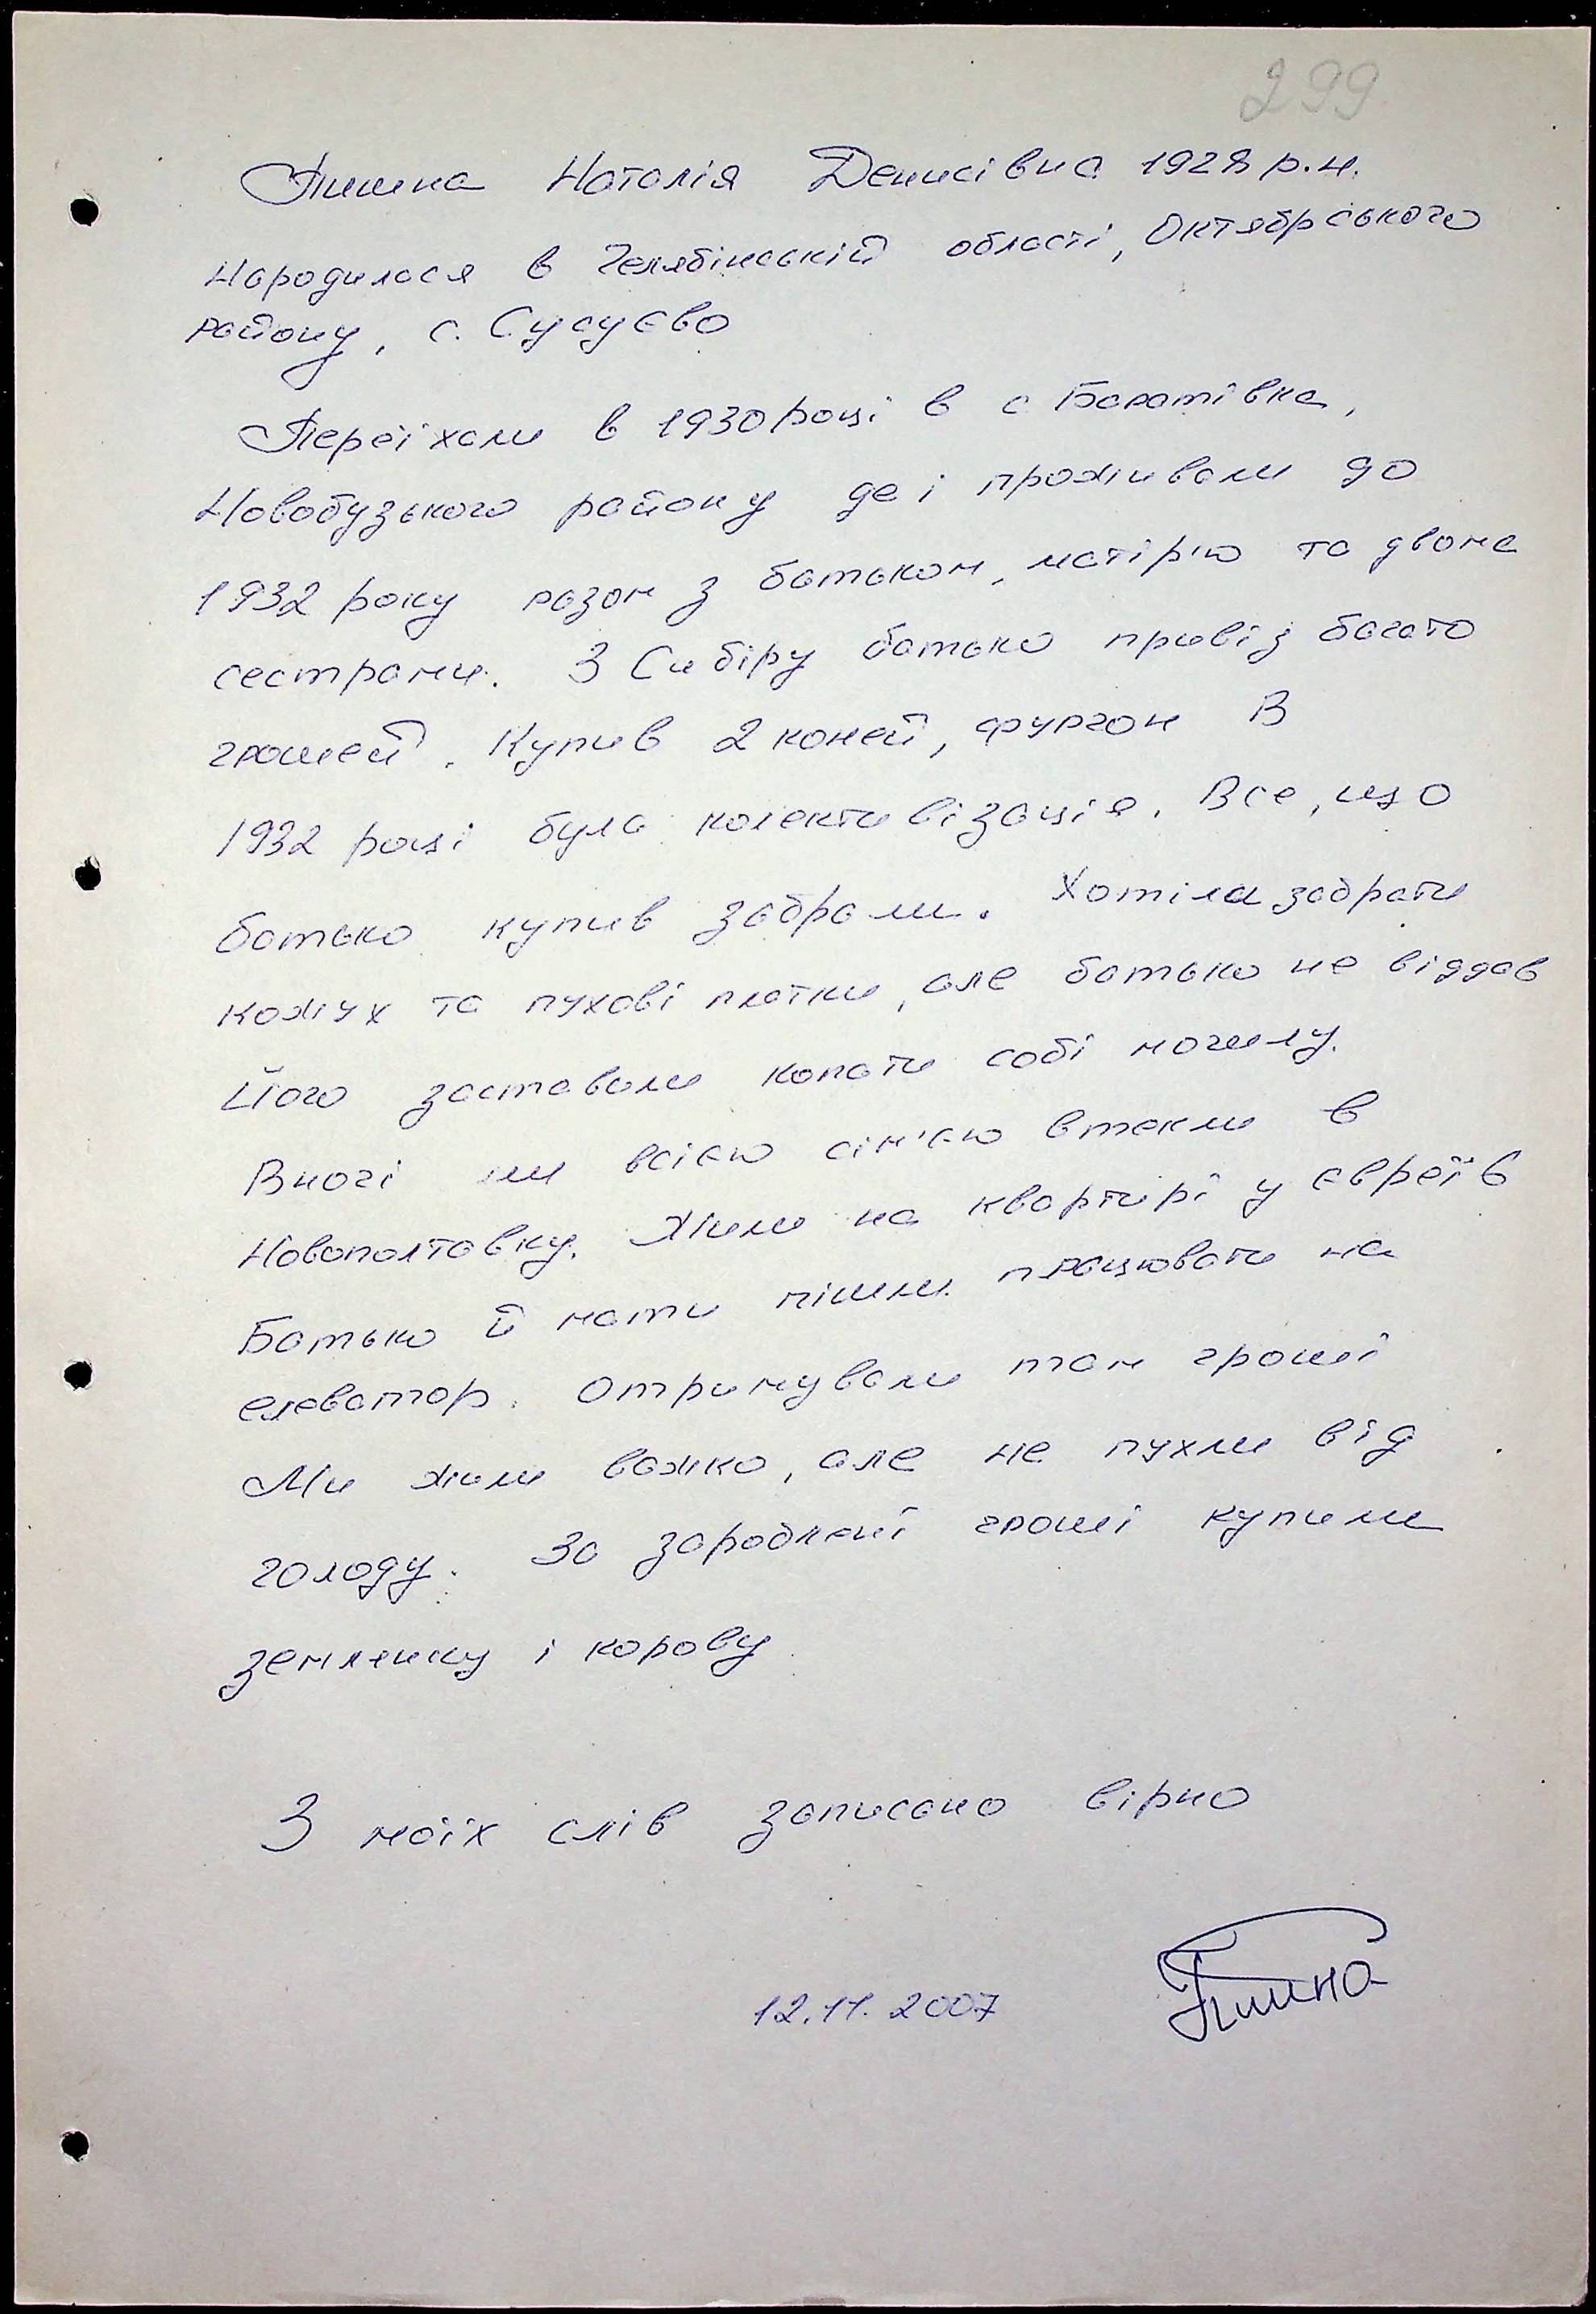 299
Пишна Наталія Денисівна 1928 р.н.
Народилася в Челябінській області, Октябрського
району, с. Сусуєво
Переїхали в 1930 році в с Баратівка,
Новобузького району де і проживали до
1932 року разом з батьком, матір'ю та двома
сестрами. З Сибіру батько привіз багато
грошей. Купив 2 коней, фургон В
1932 році була колективізація. Все, що
батько купив забрали. Хотіла забрати
кожух та пухові платки, але батько не віддав
Його заставили копати собі могилу.
Вночі ми всією сім'єю втекли в
Новополтавку. Жили на квартирі у євреїв
Батько й мати пішли працювати на
елеватор. Отримували там гроші
Ми жили важко, але не пухли від
голоду. За зароблені гроші купили
землянку і корову
З моїх слів записано вірно
12.11.2007 Пишна